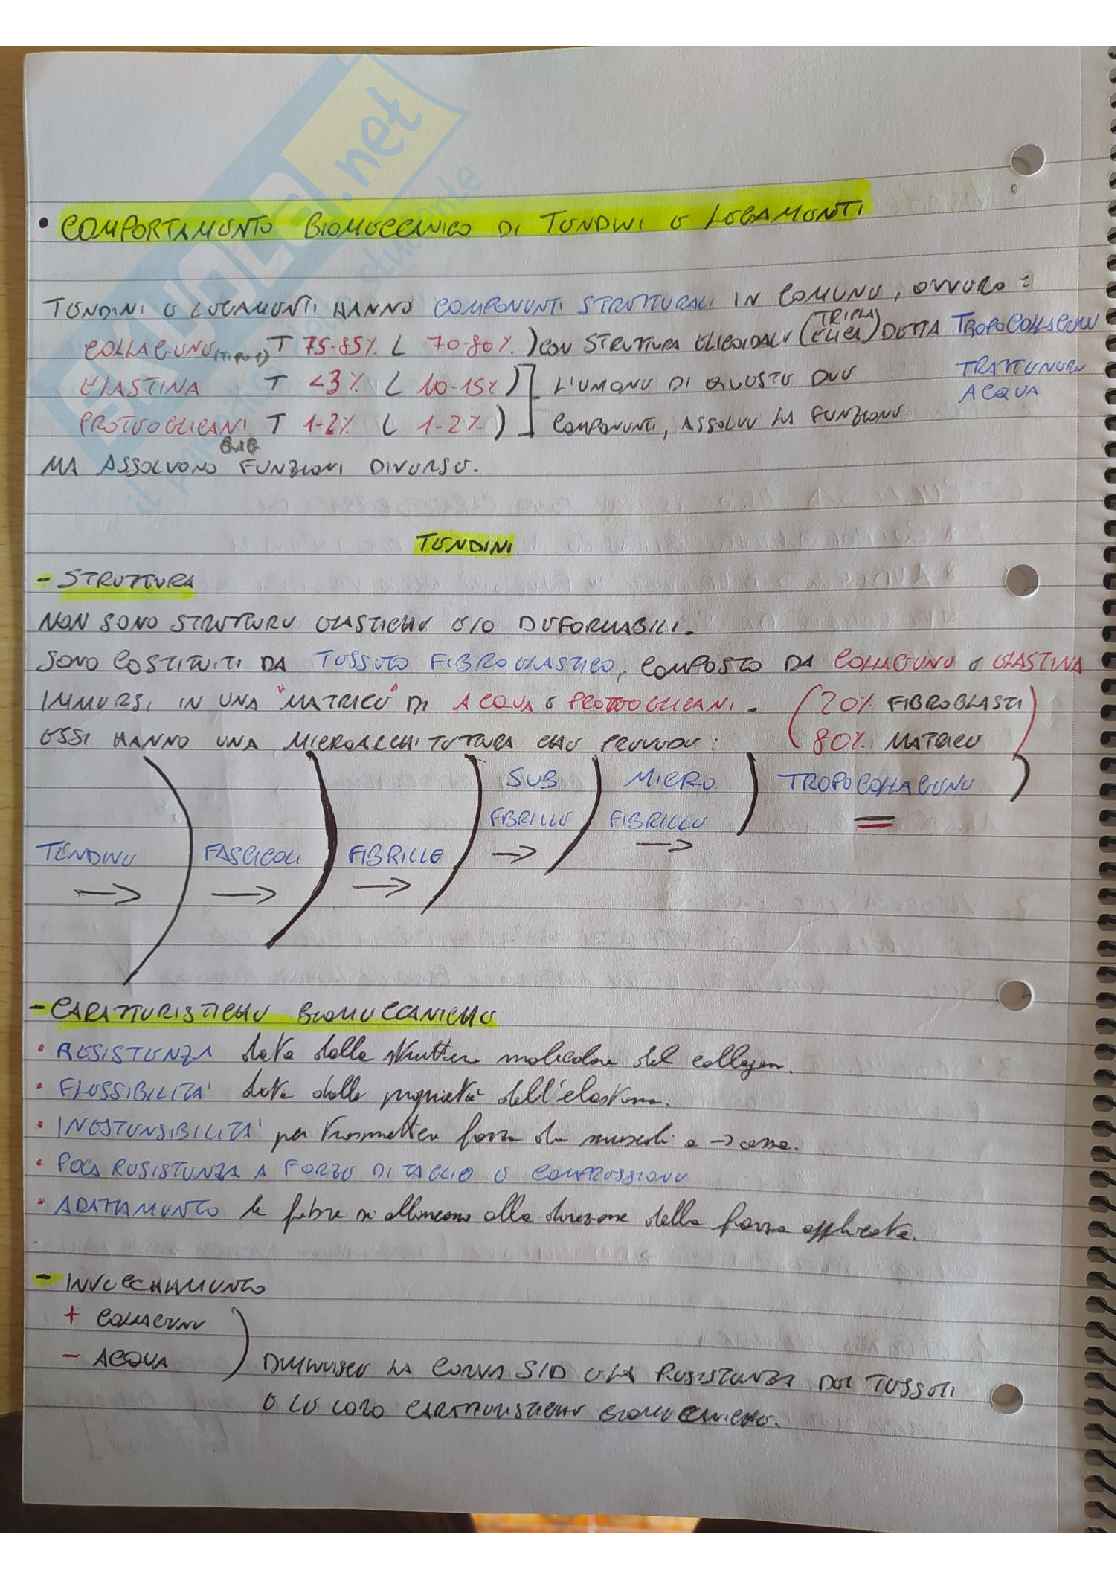 • COMPORTAMENTO BIOMECCANICO DI TENDINI E LEGAMENTI
TENDINI E LEGAMENTI HANNO COMPONENTI STRUTTURALI IN COMUNE, OVVERO:
COLLAGENE (TIPO 1) T 75-85% L 70-80%) CON STRUTTURA ELICOIDALE (TRIPLA ELICA) DETTA TROPOCOLLAGENE
ELASTINA T <3% L 10-15%) L'UNIONE DI QUESTE DUE TRATTENERE
PROTEOGLICANI T 1-2% L 1-2%) COMPONENTI, ASSOLVE LA FUNZIONE ACQUA
GAG
MA ASSOLVONO FUNZIONI DIVERSE.
TENDINI
- STRUTTURA
NON SONO STRUTTURE ELASTICHE E/O DEFORMABILI.
SONO COSTITUITI DA TESSUTO FIBROELASTICO, COMPOSTO DA COLLAGENE E ELASTINA
IMMERSI IN UNA "MATRICE" DI ACQUA E PROTEOGLICANI. (20% FIBROBLASTI
ESSI HANNO UNA MICROARCHITETTURA CHE PREVEDE: 80% MATRICE)
TENDINE → ) FASCICOLI → ) FIBRILLE → ) SUB FIBRILLE → ) MICRO FIBRILLE → ) TROPOCOLLAGENE )
- CARATTERISTICHE BIOMECCANICHE
• RESISTENZA data dalla struttura molecolare del collagene.
• FLESSIBILITÀ data dalle proprietà dell'elastina.
• INESTENSIBILITÀ per trasmettere forza da muscoli a → ossa.
• POCA RESISTENZA A FORZE DI TAGLIO E COMPRESSIONE
• ADATTAMENTO le fibre si allineano alla direzione della forza applicata.
- INVECCHIAMENTO
+ COLLAGENE
- ACQUA
) DIMINUISCE LA CURVA S/D E LA RESISTENZA DEI TESSUTI
E LE LORO CARATTERISTICHE BIOMECCANICHE.
il
.net